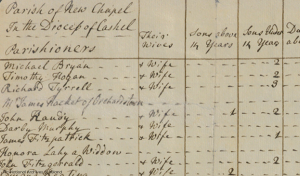 Parish of New Chapel
In the Diocess of Cashel
Parishioners Their Wives Sons above 14 Years Sons under 14 Years
Michael Bryan + Wife - - 2
Timothy Hogan + Wife - - 2
Richard Tyrrell + Wife - - 3
Mr James Hacket of Orchardstown
John Handy + Wife 1 2
Darby Murphy + Wife
James Fitzpatrick + Wife 1
Honora Lahy a Widdow
John Fitzgerald + Wife 2
Wife 2